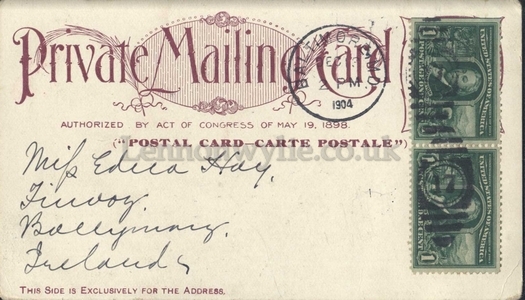 Private Mailing Card
AUTHORIZED BY ACT OF CONGRESS OF MAY 19, 1898.
("POSTAL CARD—CARTE POSTALE")
PM
1904
Lennonwylie.co.uk
Miss Edna Hay,
Finvoy,
Ballymoney,
Ireland
THIS SIDE IS EXCLUSIVELY FOR THE ADDRESS.
1 UNITED STATES OF AMERICA 1
POSTAGE ONE CENT
UNITED STATES OF AMERICA
1
1